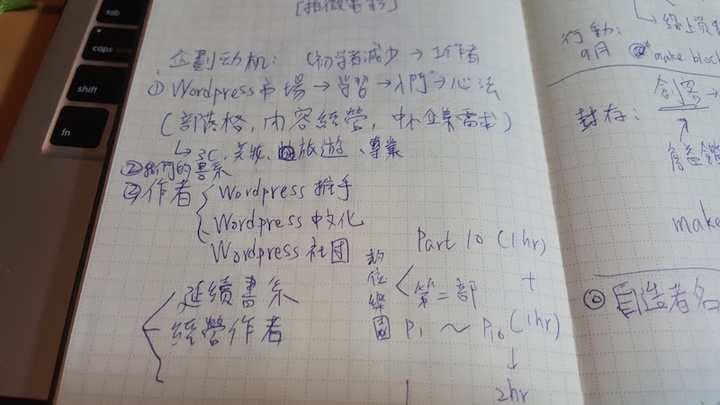 tab
caps lock
shift
fn
[拍微電影]
企劃动机: (初学者減少) → 工作者
① Wordpress市場→学習→入門→心法
(部落格, 內容經營, 中小企業需求)
↳ 3C, 美妝, 旅遊、專業
② 我們的書系
③ 作者 Wordpress 推手
Wordpress 中文化
Wordpress 社団
延續書系
經營作者
Part 10 (1hr)
數位樂園
第二部 +
P1 ~ P10 (1hr)
↓
2hr
行動:
9月
make block
封存:
創客 →
↗
make
◎ 自造者名